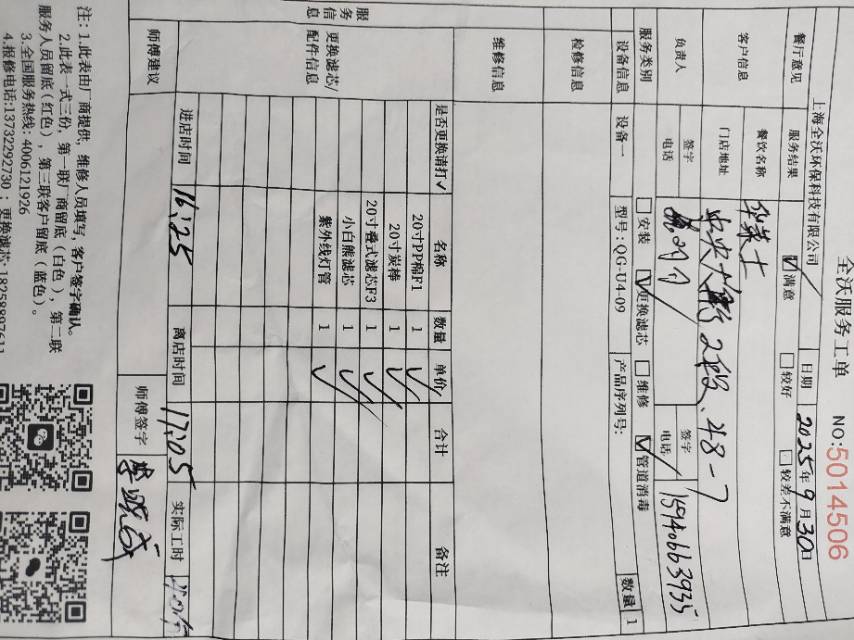 全沃服务工单 NO:5014506
上海全沃环保科技有限公司 日期 2025年9月30日
餐厅意见 服务结果 ☑满意 □较好 □较差不满意
客户信息 餐饮名称 华莱士
门店地址 2段.48-7
负责人 签字 签字
电话 电话 15940663935
服务类别 □安装 ☑更换滤芯 □维修 ☑管道消毒
设备信息 设备一 型号:QG-U4-09 产品序列号: 数量 1
检修信息
维修信息
服务信息
更换滤芯/配件信息
是否更换请打✓ 名称 数量 单价 合计 备注
20寸PP棉F1 1 ✓
20寸炭棒 1 ✓
20寸叠式滤芯F3 1 ✓
小白熊滤芯 1 ✓
紫外线灯管 1 ✓
进店时间 16:25 离店时间 17:05 实际工时
师傅建议 师傅签字
注: 1.此表由厂商提供, 维修人员填写, 客户签字确认.
2.此表一式三份, 第一联厂商留底(白色), 第二联
服务人员留底(红色), 第三联客户留底(蓝色)。
3.全国服务热线: 4006121926
4.报修电话:13732292730; 更换滤芯: